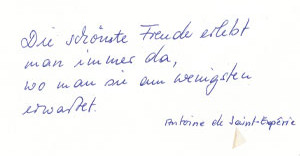 Die schönste Freude erlebt
man immer da,
wo man sie am wenigsten
erwartet.
Antoine de Saint-Exupérie